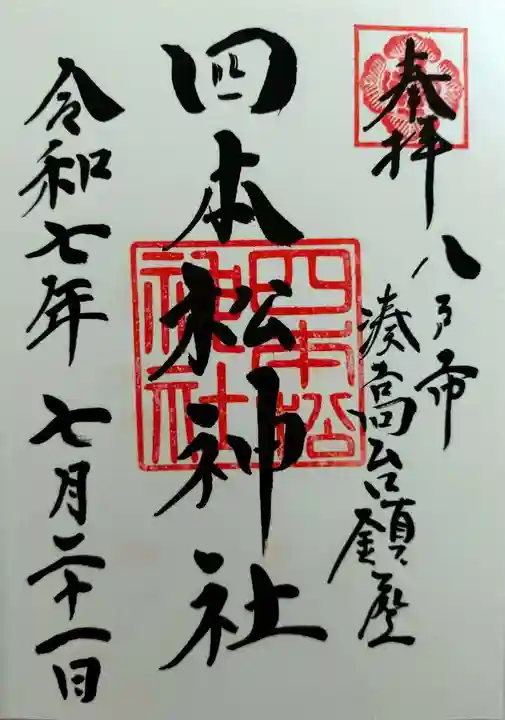 奉拝
八戸市
湊高台鎮座
四本松神社
四本松神社
令和七年 七月二十一日